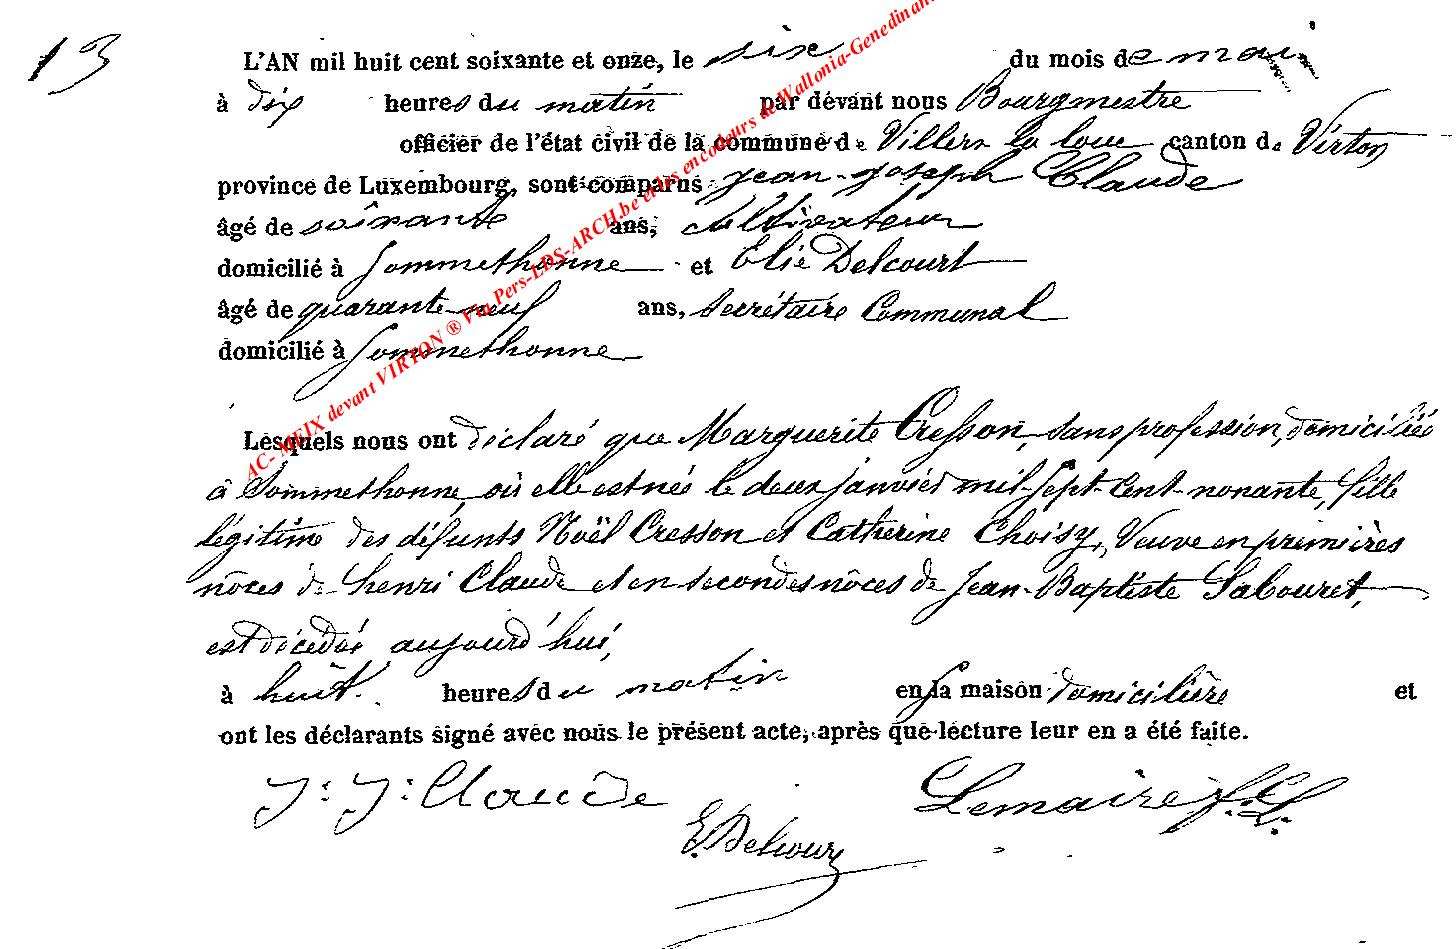 13
L'AN mil huit cent soixante et onze, le six du mois de mai
à dix heures du matin par dévant nous Bourgmestre
officier de l'état civil de la commune de Villers la loue canton de Virton
province de Luxembourg, sont comparus jean-joseph Claude
âgé de soixante ans, cultivateur
domicilié à Sommethonne et Elie Delcourt
âgé de quarante-neuf ans, secrétaire Communal
domicilié à Sommethonne
Lesquels nous ont déclaré que Marguerite Cresson, sans profession, domiciliée
à Sommethonne, où elle est née le deux janvier mil-sept-cent-nonante, fille
légitime des défunts Noël Cresson et Catherine Choisy, Veuve en premières
nôces de henri Claude et en secondes nôces de Jean-Baptiste Sabouret,
est décédée aujourd'hui,
à huit heures du matin en sa maison domicilière et
ont les déclarants signé avec nous le présent acte, après que lecture leur en a été faite.
J: J: Claude
Lemaire J. L.
E. Delcourt
AC- MEIX devant VIRTON ® Via Pers-LDS-ARCH.be et les encodeurs de Wallonia-Genedinant